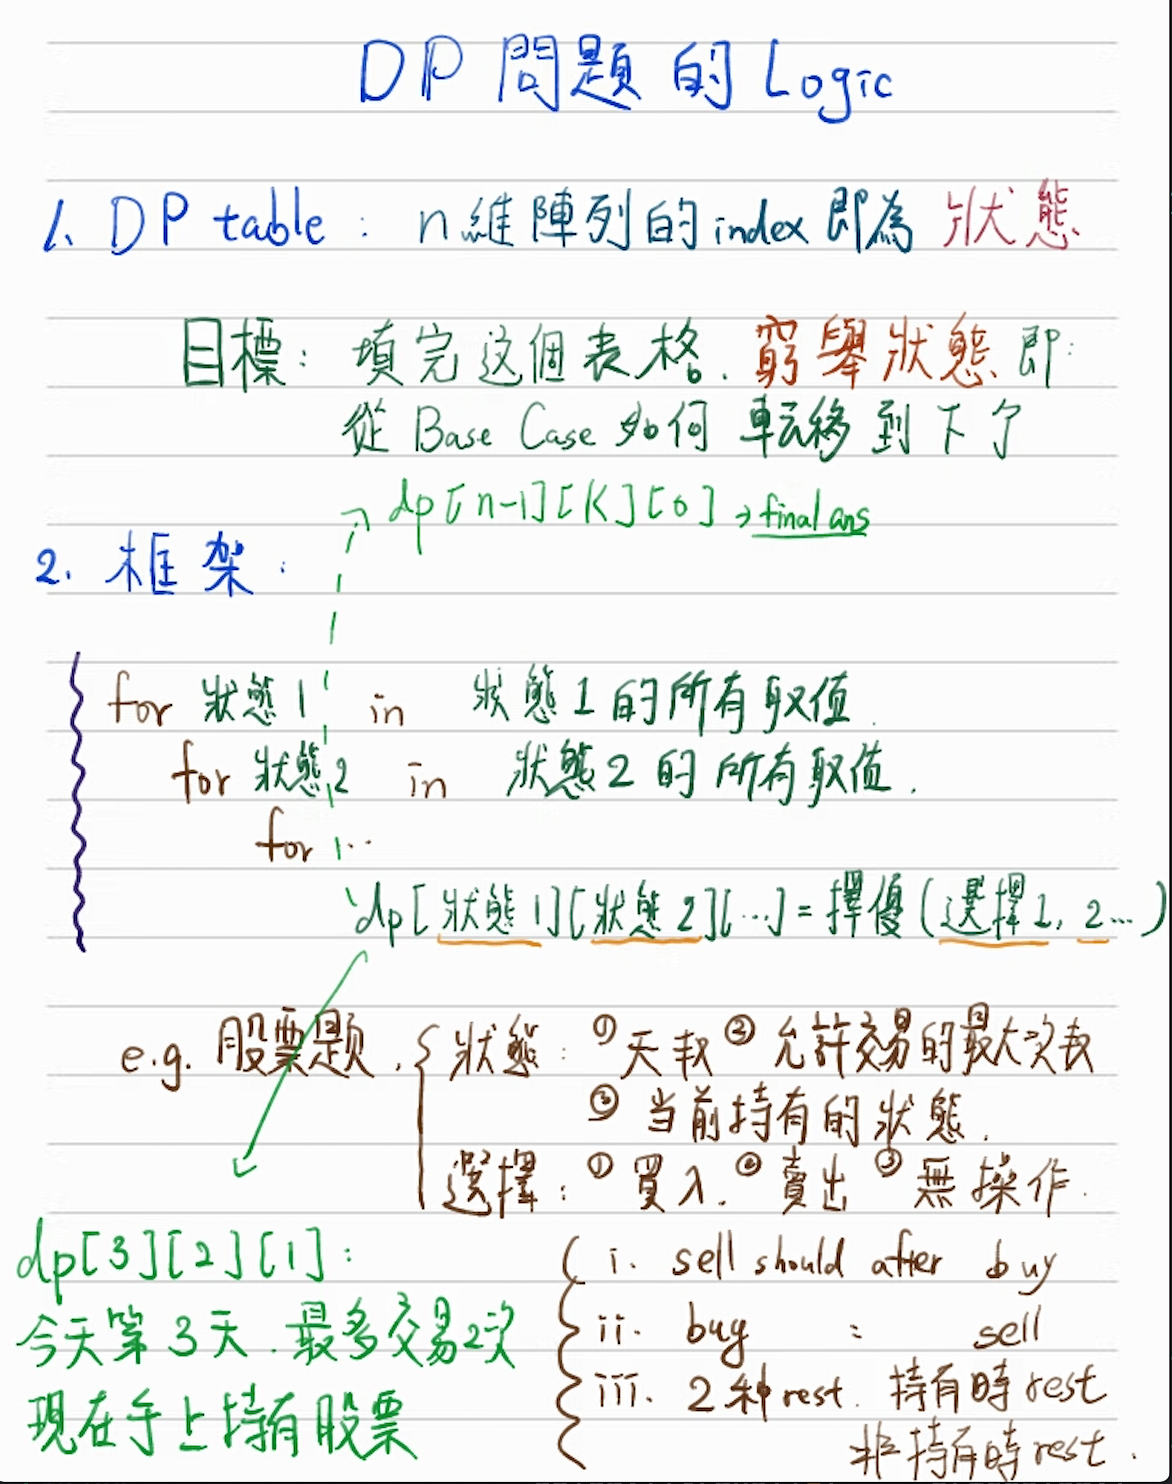 DP 問題 的 Logic
1. DP table : n維陣列的 index 即為 狀態
目標: 填完这個表格. 窮舉狀態 即:
從 Base Case 如何 転移 到 下个
dp[n-1][K][0] → final ans
2. 框架 :
for 狀態1 in 狀態1的所有取值.
for 狀態2 in 狀態2的所有取值.
for ...
dp[狀態1][狀態2][...] = 擇優(選擇1, 2...)
e.g. 股票题. { 狀態: ①天数 ②允許交易的最大次数
③ 当前持有的狀態.
選擇: ①買入. ②賣出 ③無操作.
dp[3][2][1]:
今天第3天. 最多交易2次
現在手上持有股票
i. sell should after buy
ii. buy : sell
iii. 2种rest. 持有時rest
非持有時rest.